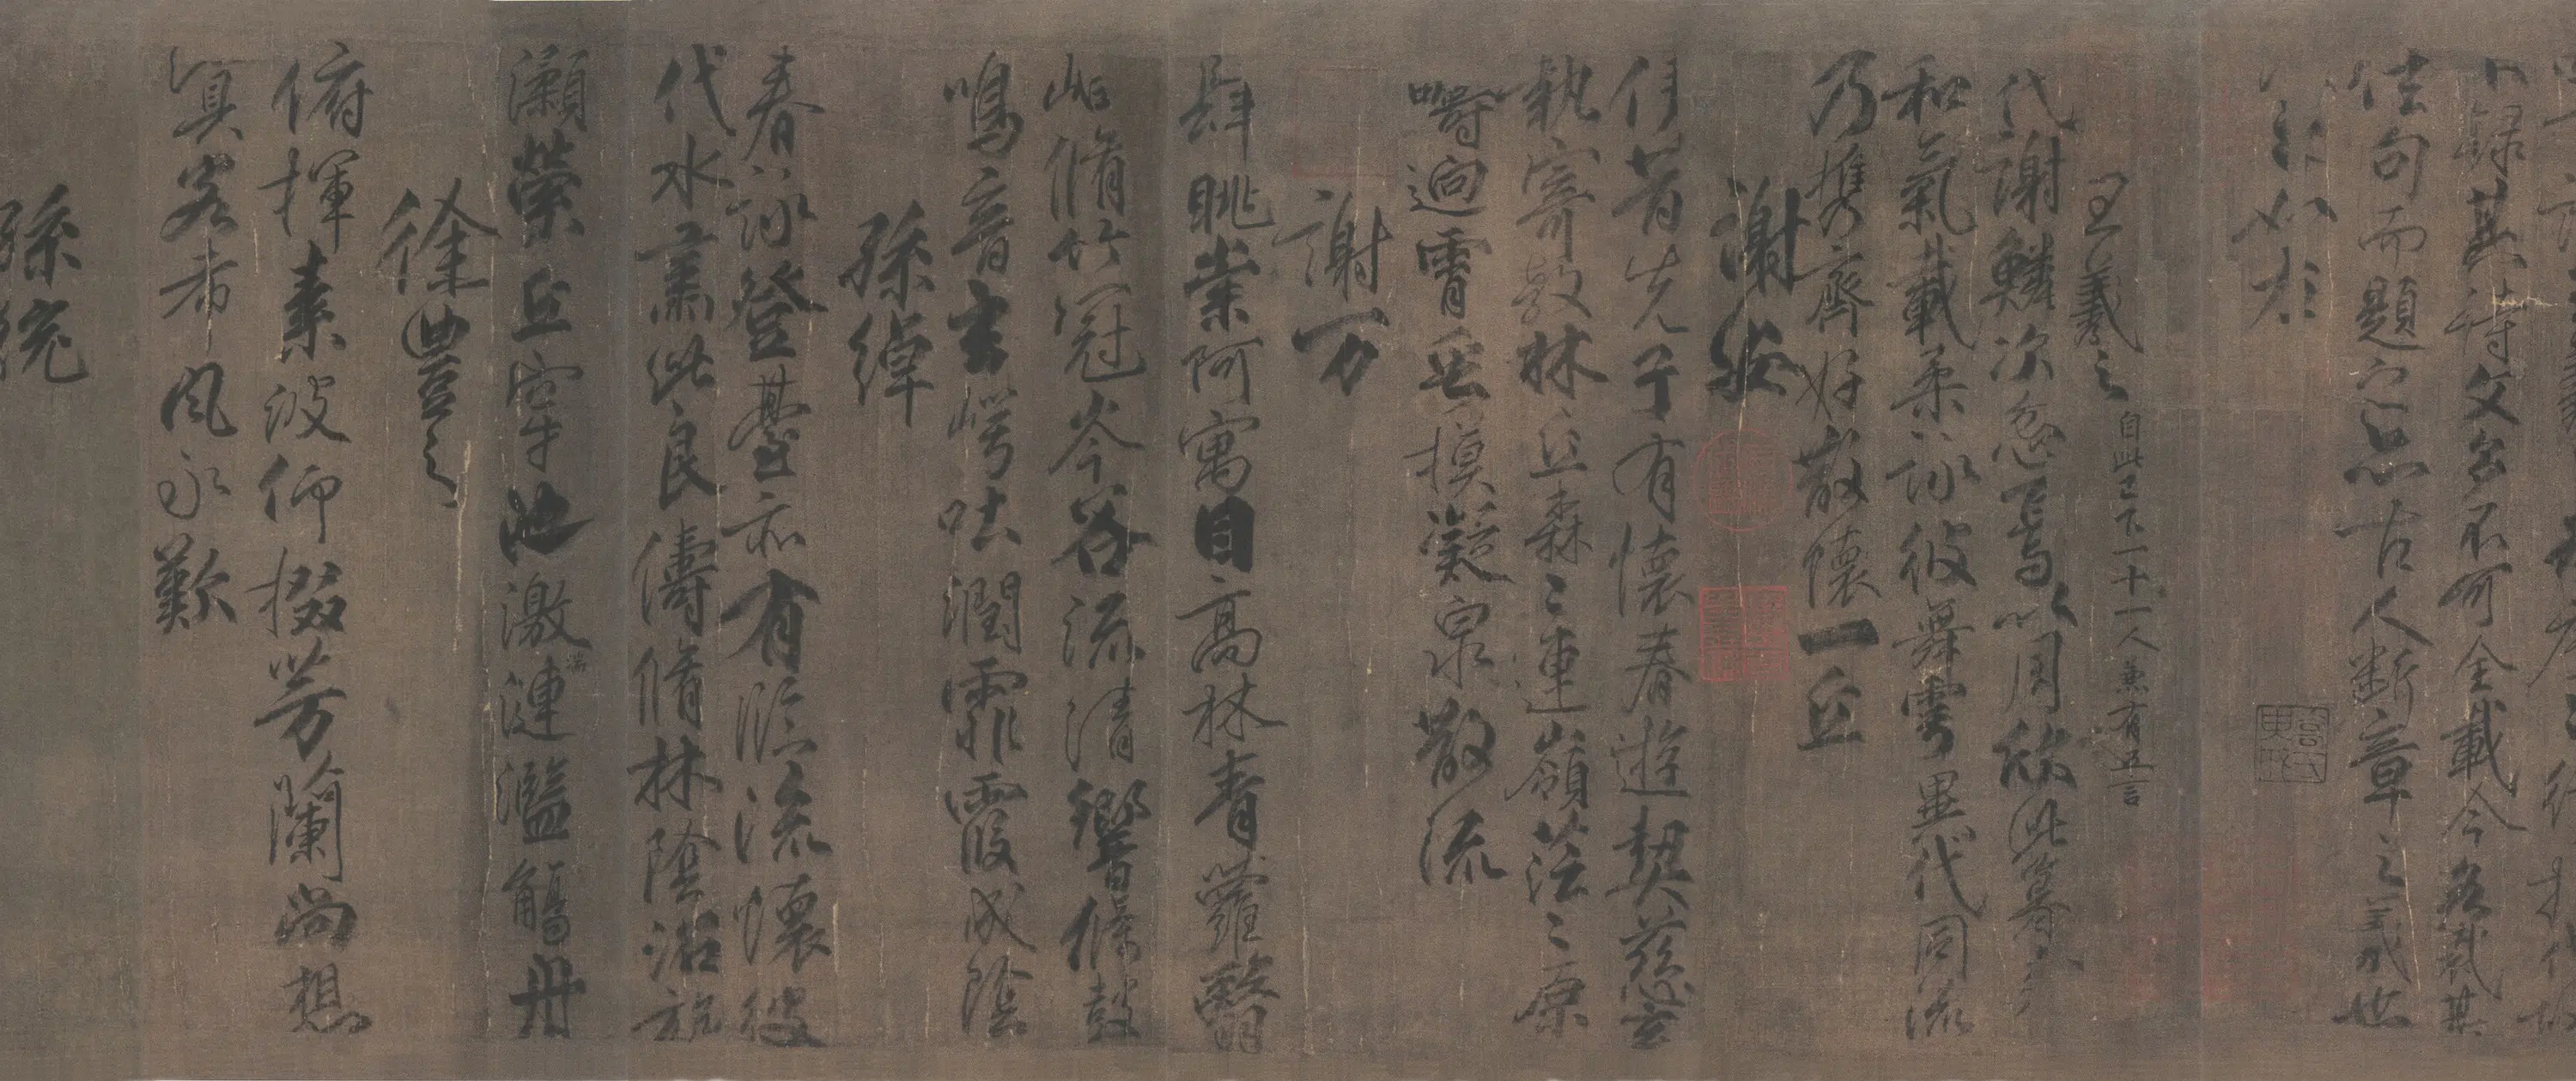 不錄其詩文多不可全載今各裁其
佳句而題之亦古人斷章之義也
如左
王羲之 自此已下一十一人兼有五言
代謝鱗次忽焉以周欣此暮春
和氣載柔詠彼舞雩異代同流
乃攜齊好散懷一丘
謝安
伊昔先子有懷春遊契茲玄
執寄敖林丘森〻連嶺茫〻原
疇迥霄垂摸凝泉散流
謝万
肆眺崇阿寓目高林青蘿翳
岫脩竹冠岑谷流清響條鼓
鳴音玄崿吐潤霏霞成陰
孫綽
春詠登臺亦有臨流懷彼
代水肅此良儔脩林陰沼旋
瀨縈丘穿池激湍漣濫觴舟
徐豐之
俯揮素波仰掇芳蘭尚想
客希風永歎
孫統